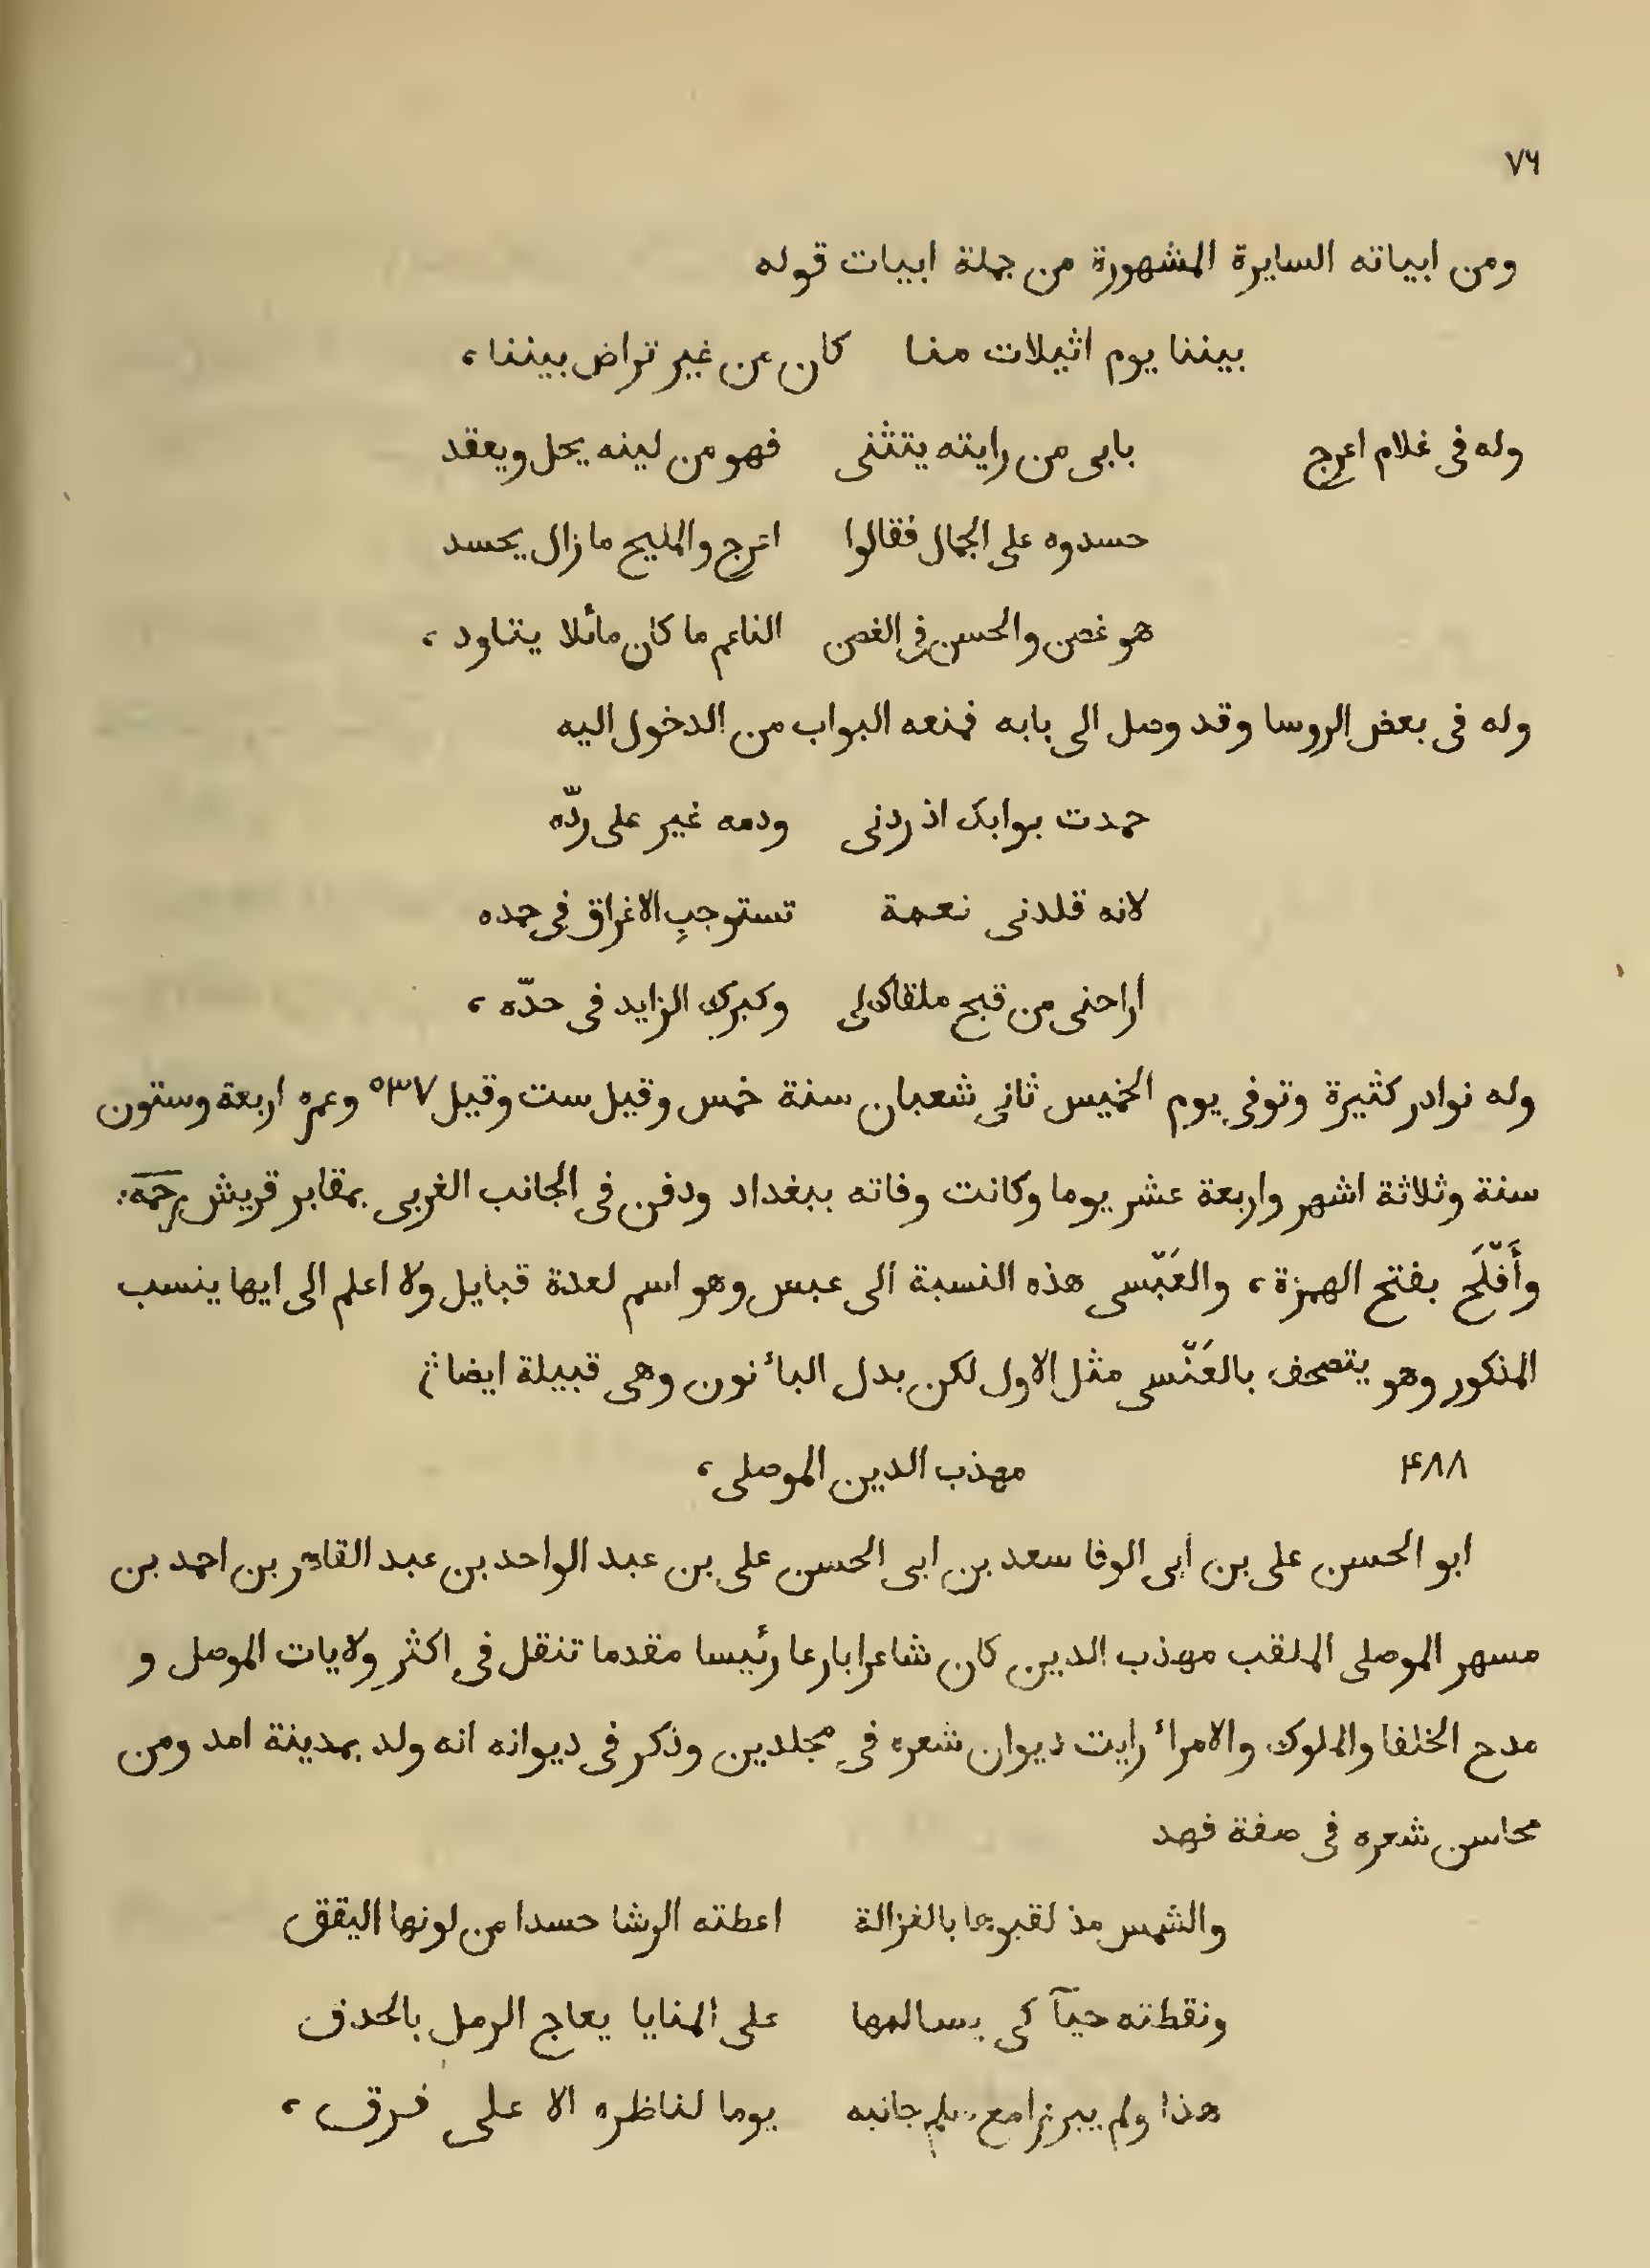 ٧٦
ومن ابياته السايرة المشهورة من جملة ابيات قوله
بيننا يوم اثيلات منا كان عن غير تراض بيننا ،
وله فى غلام اعرج بابى من رايته يتثنى فهو من لينه يحل ويعقد
حسدوه على الجمال فقالوا اعرج والمليح ما زال يحسد
هو غصن والحسن فى الغصن الناعم ما كان مائلا يتاود ،
وله فى بعض الروسا وقد وصل الى بابه فمنعه البواب من الدخول اليه
حمدت بوابك اذ ردنى وذمه غير على ردّه
لانه قلدنى نعمة تستوجب الاغراق فى حمده
اراحنى من قبح ملقاك لى وكبرك الزايد فى حدّه ،
وله نوادر كثيرة وتوفى يوم الخميس ثانى شعبان سنة خمس وقيل ست وقيل ٥٣٧ وعمره اربعة وستون
سنة وثلاثة اشهر واربعة عشر يوما وكانت وفاته ببغداد ودفن فى الجانب الغربى بمقابر قريش رحمه :
وأَفْلَح بفتح الهمزة ، والعَبْسى هذه النسبة الى عبس وهو اسم لعدة قبايل ولا اعلم الى ايها ينسب
المذكور وهو يتصحف بالعَنْسى مثل الاول لكن بدل البا ٔ نون وهى قبيلة ايضا
۴۸۸ مهذب الدين الموصلى ،
ابو الحسن على بن أبى الوفا سعد بن ابى الحسن على بن عبد الواحد بن عبد القاهر بن احمد بن
مسهر الموصلى الملقب مهذب الدين كان شاعرا بارعا رئيسا مقدما تنقل فى اكثر ولايات الموصل و
مدح الخلفا والملوك والامرا ٔ رايت ديوان شعره فى مجلدين وذكر فى ديوانه انه ولد بمدينة امد ومن
محاسن شعره فى صفة فهد
والشمس مذ لقبوها بالغزالة اعطته الرشا حسدا من لونها اليقق
ونقطته حيآ كى يسالمها على المنايا يعاج الرمل بالحدق
هذا ولم يبرزا مع جانبه يوما لناظره الا على فرق ،